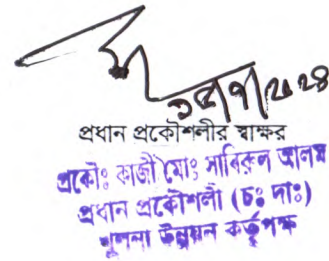 প্রধান প্রকৌশলীর স্বাক্ষর
প্রকৌঃ কাজী মোঃ সাবিরুল আলম
প্রধান প্রকৌশলী (চঃ দাঃ)
খুলনা উন্নয়ন কর্তৃপক্ষ